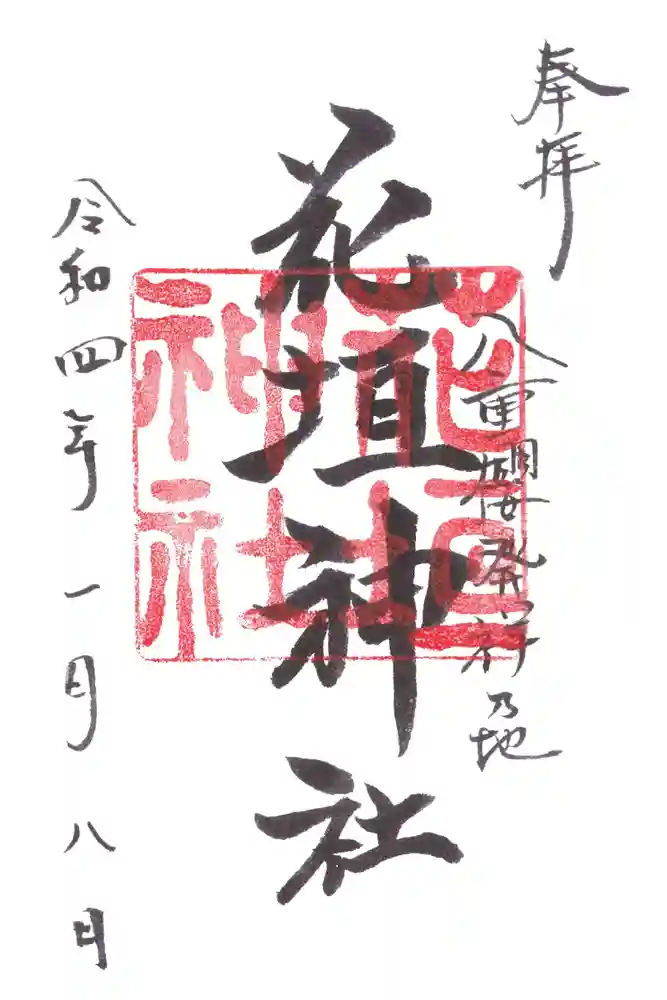 奉拝
八重桜発祥乃地
花垣神社
令和四年一月八日
花垣神社